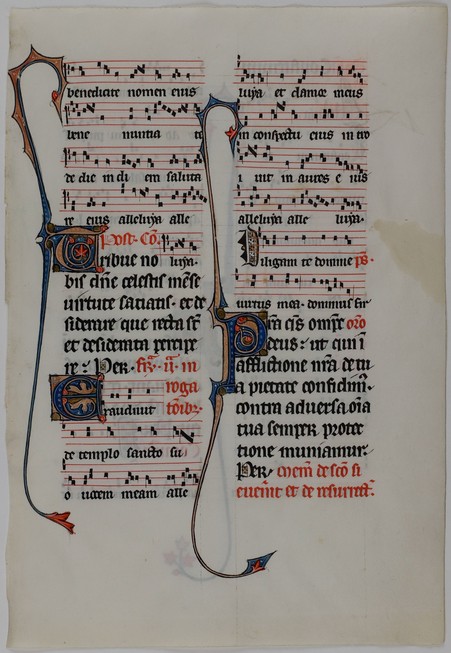 benedicite nomen eius
bene nuntia te
de die in di em saluta
re eius alleluya alle
Post Co.
Tribue no luya.
bis dne celestis mense
virtute saciatis. et de
siderare que recta st
et desiderata percipe
re. Per. fr. ii. in
roga
Exaudiuit
de templo sancto su
o uocem meam alle
luya et clamor meus
in conspectu eius in tro
i uit in aures e ius
alleluya alle luya.
Diligam te domine ps.
uirtus mea. dominus fir
Pra qs omps oro
deus. ut qui i
afflictione nra de tu
a pietate confidim.
contra aduersa oia
tua semper protec
tione muniamur.
Per. mem de sco si
euenit et de resurrect.